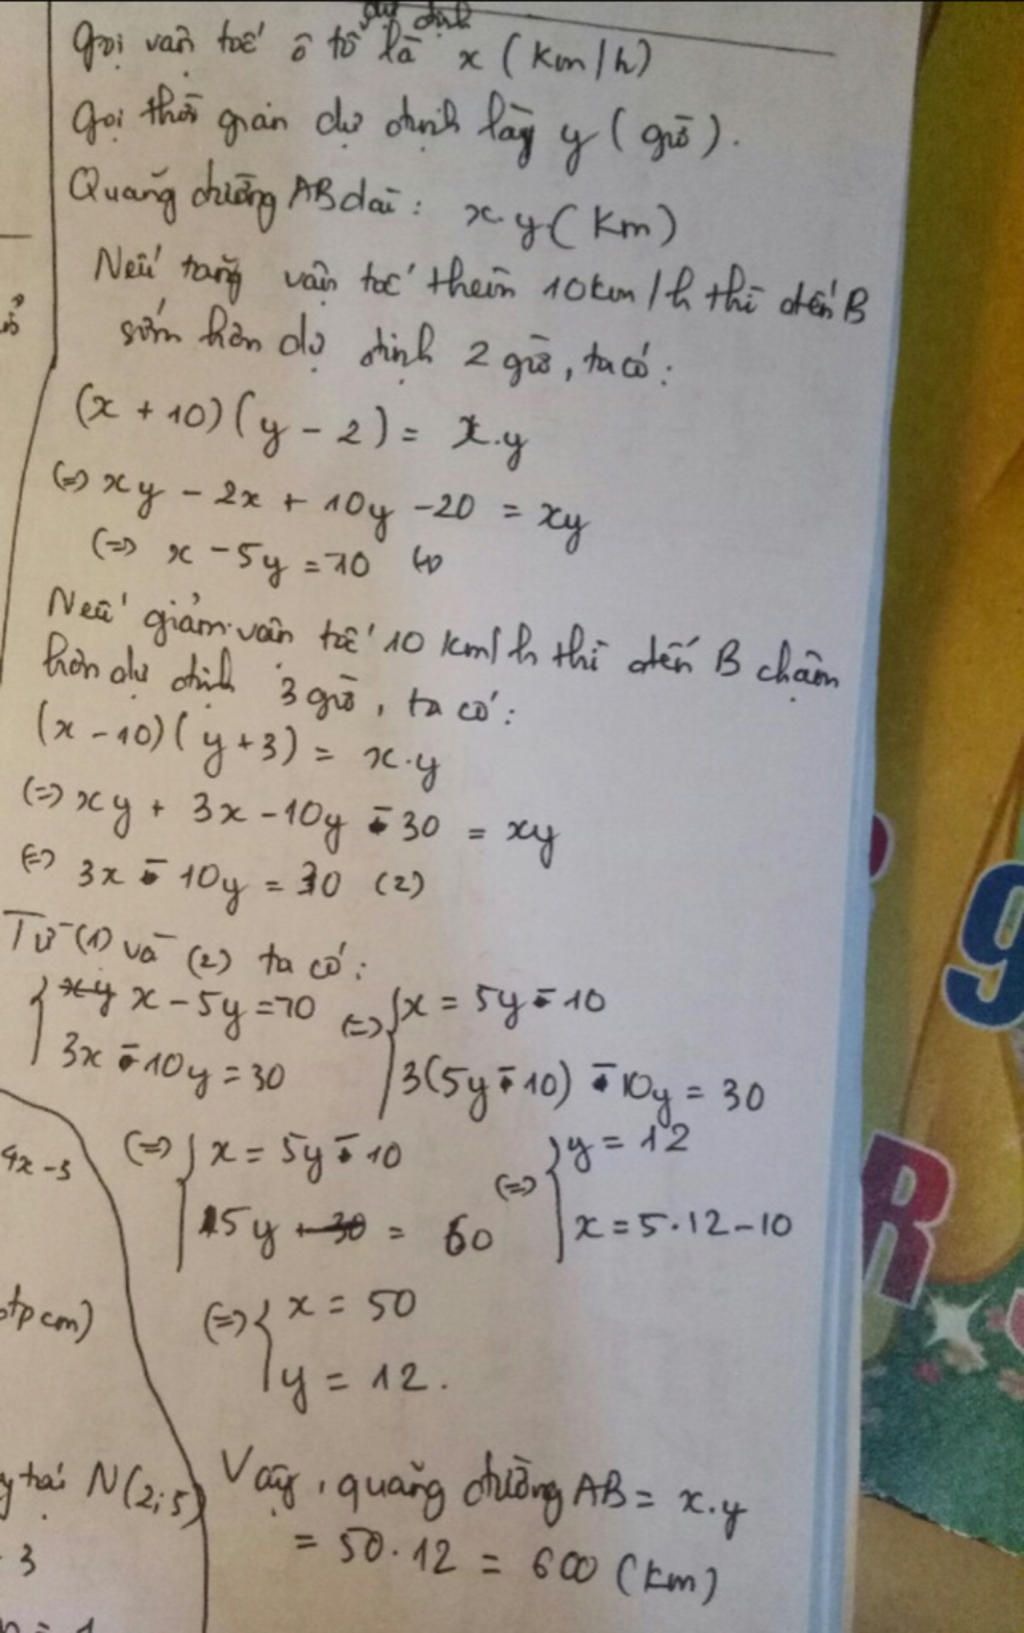 dự định
Gọi vận tốc ô tô là x (km/h)
Gọi thời gian dự định là y (giờ).
Quãng đường AB dài: x.y (km)
Nếu tăng vận tốc thêm 10km/h thì đến B
sớm hơn dự định 2 giờ, ta có:
(x + 10)(y - 2) = x.y
(=) xy - 2x + 10y - 20 = xy
(=) x - 5y = -10 (1)
Nếu giảm vận tốc 10 km/h thì đến B chậm
hơn dự định 3 giờ, ta có:
(x - 10)(y + 3) = x.y
(=) xy + 3x - 10y - 30 = xy
(=) 3x - 10y = 30 (2)
Từ (1) và (2) ta có:
x - 5y = -10 (=) x = 5y - 10
3x - 10y = 30 3(5y - 10) - 10y = 30
(=) x = 5y - 10 (=) y = 12
5y = 60 x = 5.12 - 10
(=) x = 50
y = 12.
Vậy, quãng đường AB = x.y
= 50.12 = 600 (km)
4x - 3
cm)
N(2;5)
3
9
R